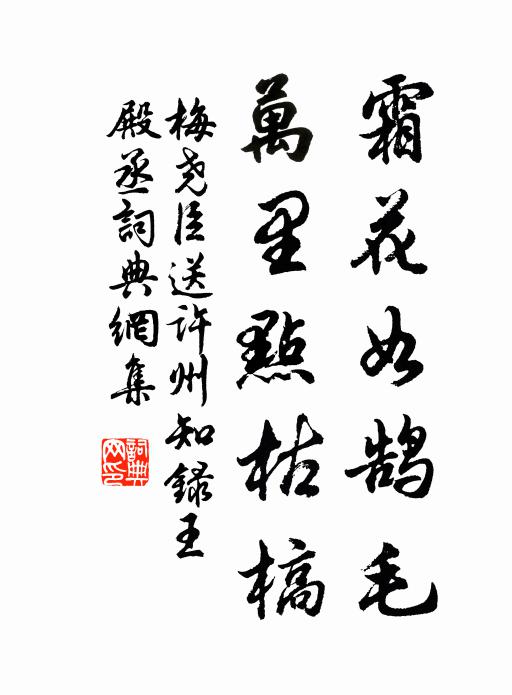 霜花如鹄毛
萬里點枯槁
梅尧臣送許州知録王
殿丞詞典網集
詞典网印